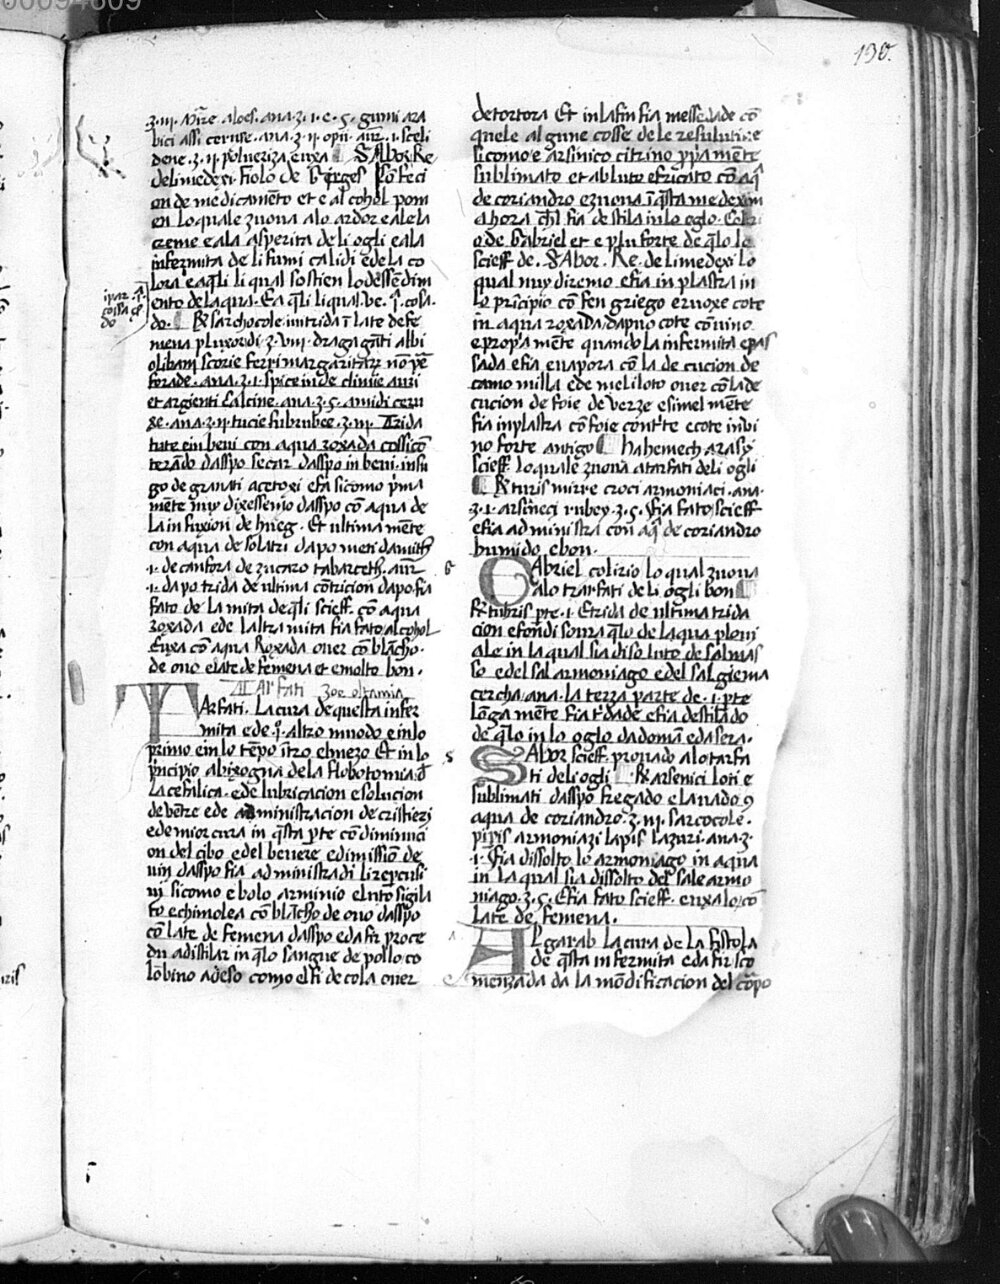 130.
ʒ. iij. mirre aloes. ana. ʒ. i. e. s. gumi ara
bici assi ceruse. ana. ʒ. ij. opii. aur. i. sceli
done. ʒ. ij. polueriza euxa Sabor Re
deli medexi. fiolo de Georges
on de medicamēto et e al cohol pom
en lo quale zuoua alo ardor e ale la
creme e ala asperita de li ogli e ala
infermita de li fumi calidi e de la co
lora e aq̄li li qual sostien lo dessēdim
ento de laqua. Ea q̄li li qual ve. q̄. cosa.
do. R̄ sarchocole nutrida ī late de fe
mena pluxor di. ʒ. viij. dragagāti albi
olibani scorie ferri margaritarum nō pē
forade. ana. ʒ. i. spice inde climie auri
et argenti Calcine. ana. ʒ. s. amidi ceru
se. ana. ʒ. ij. tucie subrubee. ʒ. iij. Trida
tute ein beui con aqua roxada cossi cō
terādo daspo secar daspo in beui. insu
go de granati acetoxi e fa sicomo p̄ma
mēte nuy dixessemo daspo cō aqua de
la infuxion de hueg. Et ultima mēte
con aqua de solatri da po meti damith
.i. de canfora de zucaro tabarceth. aur.
.i. da po trida de ultima cōtricion da po fia
fato de la mita de q̄li scieff. cō aqua
roxada e de laltra mita fia fato alcohol
Euxa cō aqua Roxada ouer cō blācho.
de ouo e late de femena et e molto bon.
Tarfati
TArfati. La cura de questa infer
mita e de .q̄. altro muodo e in lo
primo e in lo tēpo
p̄ncipio abixogna de la flobotomia. d̄
La cefalica. e de lubricacion e solucion
de vētre e de administracion de cristierj
e de mior cura in q̄sta p̄te cō diminuci
on del cibo e del beuere e dimissiō de
uin daspo fia administradi li repercusi
ui sicomo e bolo arminio e luto sigila
to e chimolea cō blācho de ouo daspo
cō late de femena daspo e da fir proce
du a distilar in q̄lo sangue de pollo co
lōbino adeso como el fi de cola ouer
de tortora Et in la fin fia messedade cō
quele algune cosse de le resulutiue
sicomo e arsinico citrino p̄p̄a mēte
sublimato et abluto e fricato cō aq̄
de coriandro e zuoua ī q̄sta medexim
a hora ch̄l fia destila in lo oglo. Coliri
o de Gabriel et e plu forte de q̄lo lo
scieff de. Sabor. Re. de li medexi lo
qual nuy diremo e fia in plastra in
lo prīcipio cō fen griego e ruoxe cote
in aqua roxada. dapuo cote cō uino
e propia mēte quando la infermita e pas
sada e fia euapora cō la decucion de
camomilla e de meliloto ouer cō la de
cucion de foie de verze e simel mēte
fia inplastra cō foie cont'te e cote in vi
no forte antigo hahemech arasy
scieff. lo quale zuoua a tarfati de li ogli
R̄ turis mirre croci armoniaci. ana.
ʒ. i. arsineci rubey. ʒ. s. fia fato scieff
e fia administra con aq̄ de coriandro
humido. e bon.
GAbriel colirio lo qual zuoua
alo tarfati de li ogli bon
R̄ turis pte. i. E trida de ultima trida
cion e fondi soura q̄lo de laqua pioui
ale in la qual sia disoluto de sal mas
so e del sal armoniago e del sal giema
cercha. ana. la terza parte de .i. pte
lōga mēte fia t'dade e fia destilado
de q̄lo in lo oglo da doman e da sera.
SAbor scieff. prouado alo tarfa
ti de li ogli R̄ arsenici loti e
sublimati daspo fregado e lauado 9
aqua de coriandro. ʒ. iij. sarcocole.
pip̄is armoniazi lapis lazuri. ana. ʒ.
.i. fia dissolto lo armoniago in aqua
in la qual sia dissolto del sale armo
niago. ʒ. s. E fia fato scieff. e uxalo cō
late de femena.
ALgarab la cura de la fistola
de q̄sta infermita e da fir sco
menzada da la mōdificacion del corpo
cossa
do